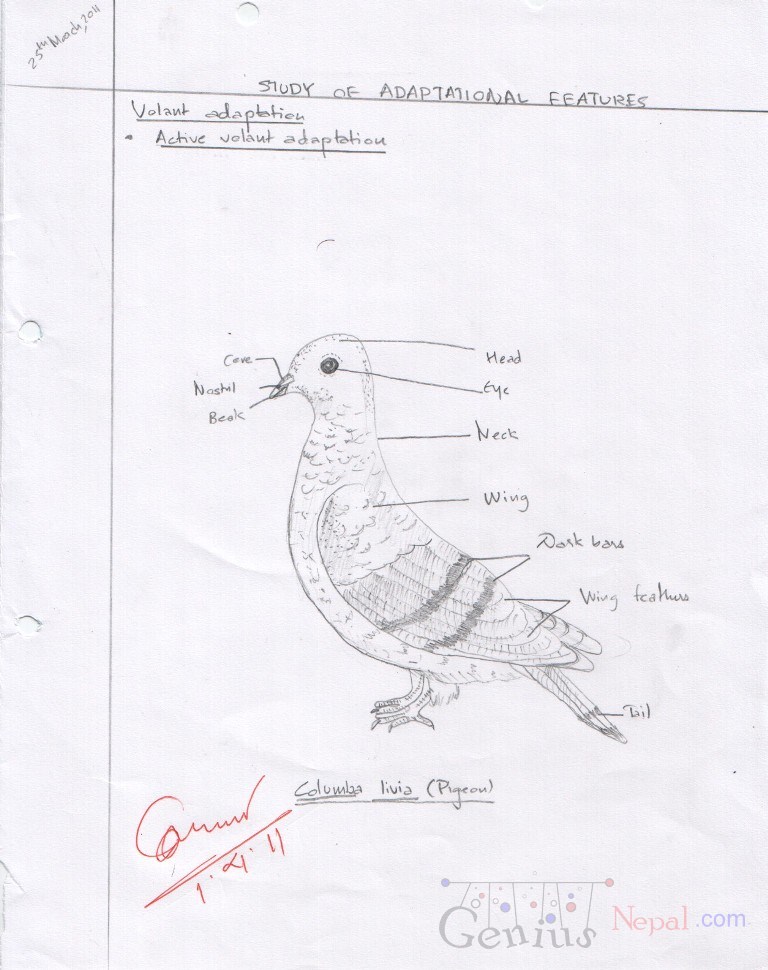 25th March, 2011
STUDY OF ADAPTATIONAL FEATURES
Volant adaptation
• Active volant adaptation
Cere
Nostril
Beak
Head
Eye
Neck
Wing
Dark bars
Wing feathers
Tail
Columba livia (Pigeon)
Genius Nepal.com